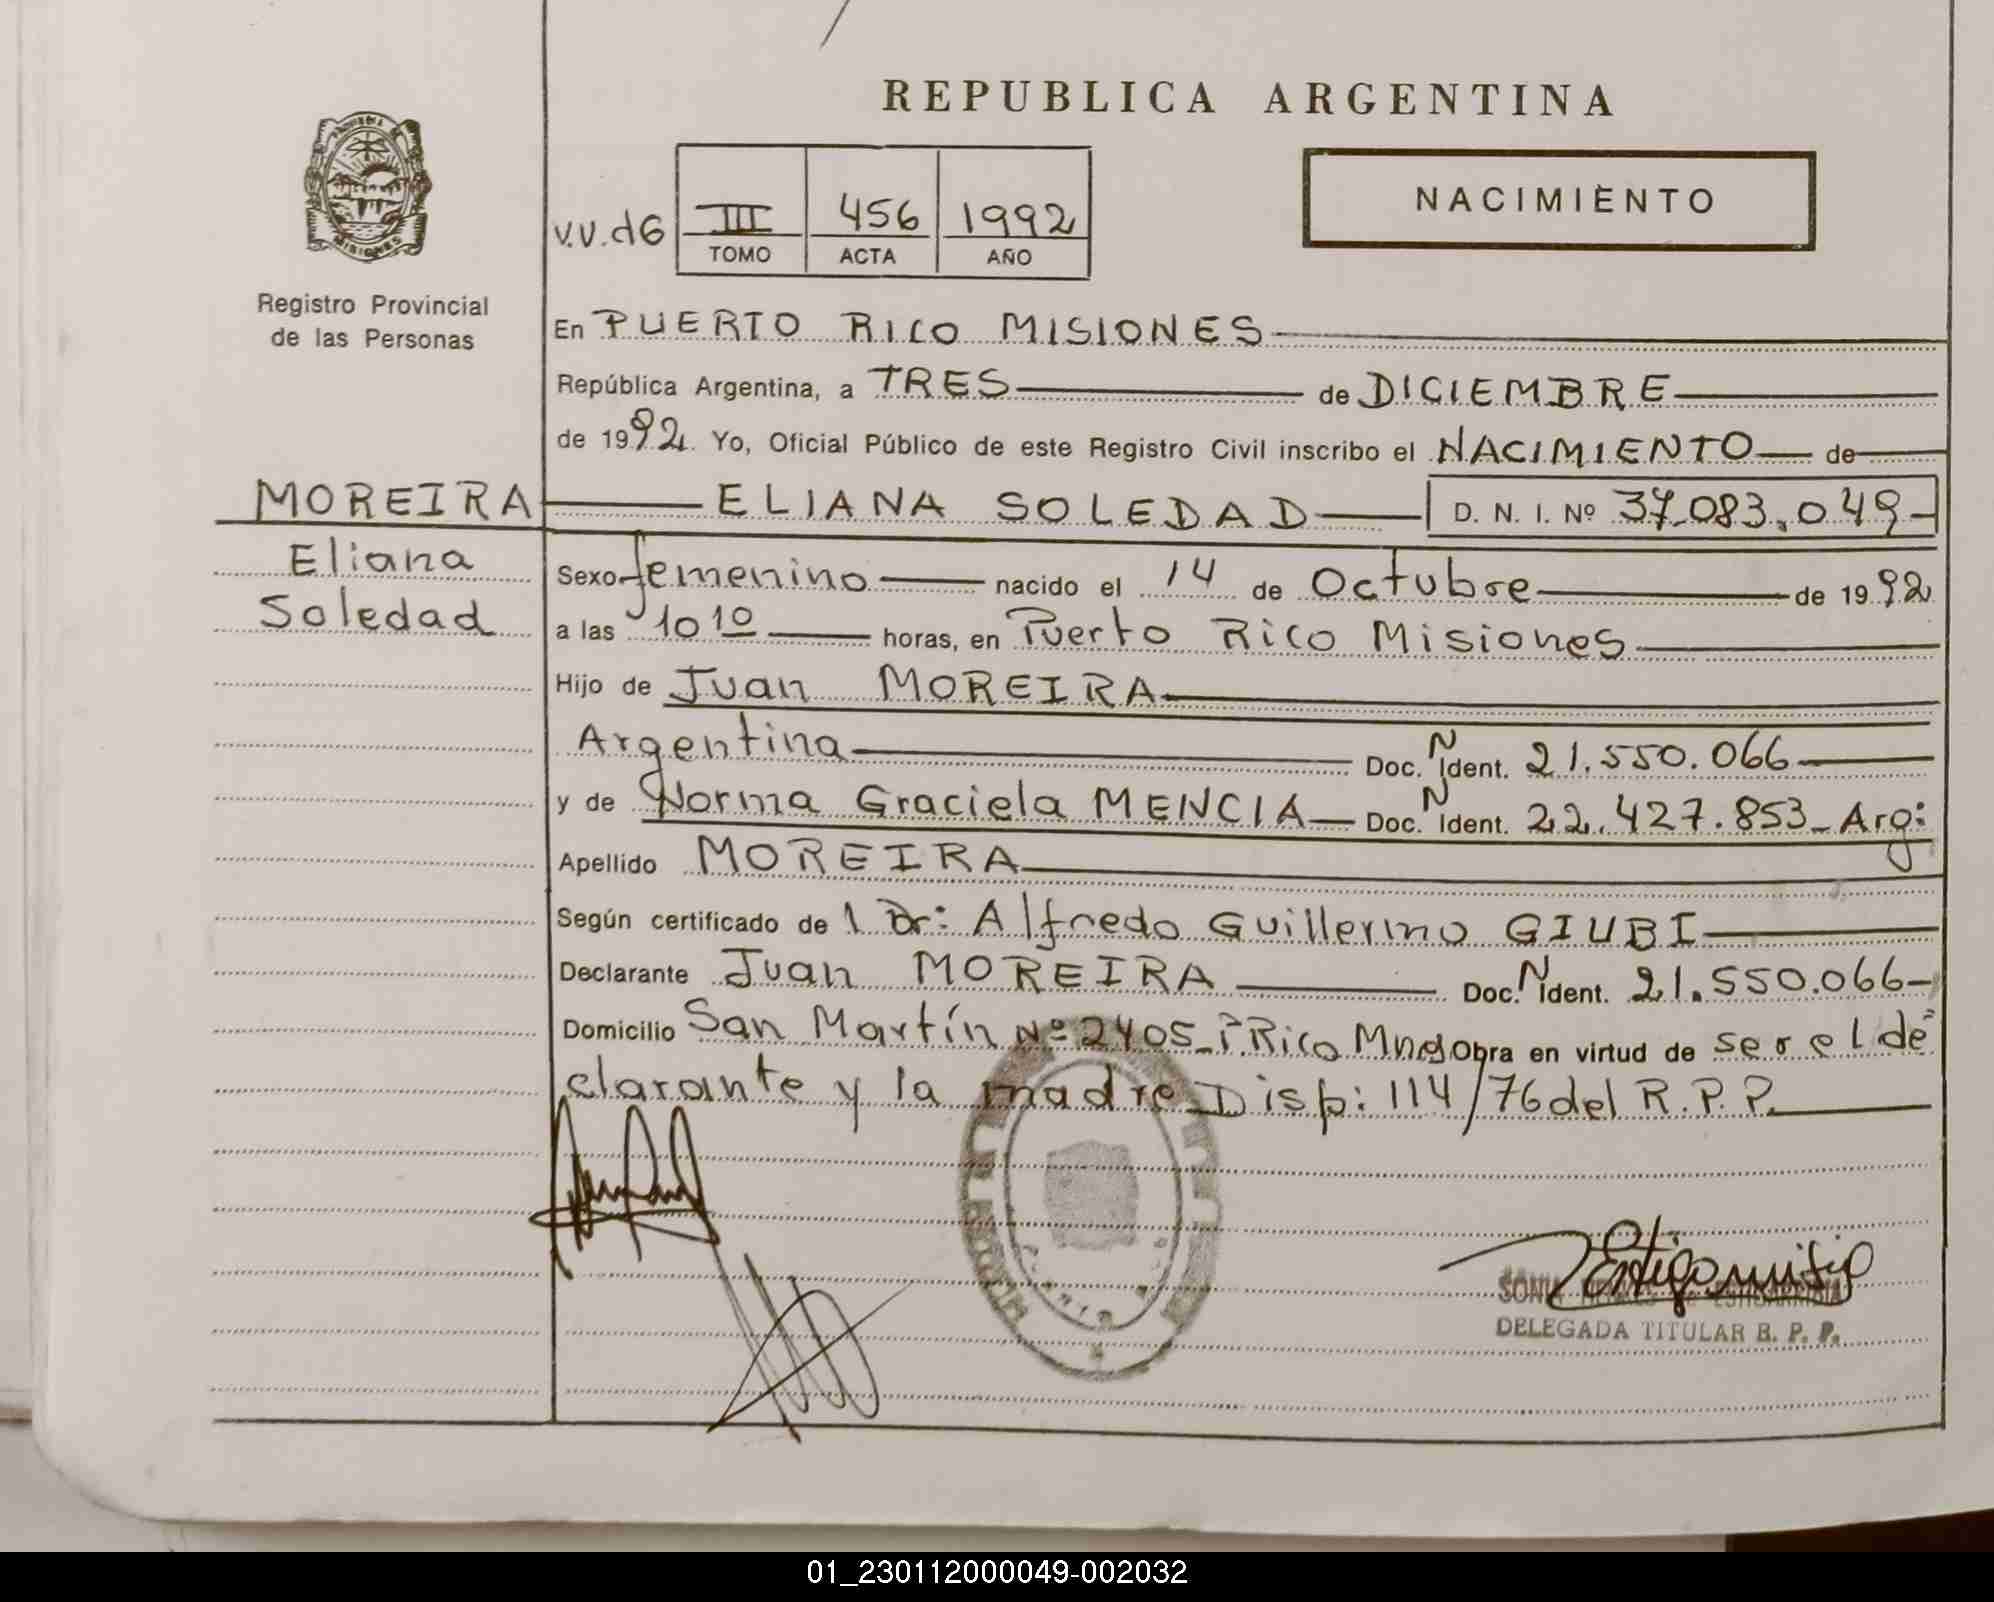 REPUBLICA ARGENTINA
PROVINCIA DE
MISIONES
NACIMIENTO
V.V. d6 III 456 1992
TOMO ACTA AÑO
Registro Provincial
de las Personas
En PUERTO RICO MISIONES
República Argentina, a TRES de DICIEMBRE
de 1992. Yo, Oficial Público de este Registro Civil inscribo el NACIMIENTO de
MOREIRA ELIANA SOLEDAD D. N. I. Nº 37.083.049
Eliana
Soledad
Sexo femenino nacido el 14 de Octubre de 1992
a las 10 10 horas, en Puerto Rico Misiones
Hijo de Juan MOREIRA
Argentina Doc. N Ident. 21.550.066
y de Norma Graciela MENCIA Doc. N Ident. 22.427.853 Arg:
Apellido MOREIRA
Según certificado de 1 Dr: Alfredo Guillermo GIUBI
Declarante Juan MOREIRA Doc. N Ident. 21.550.066
Domicilio San Martín Nº 2405 P. Rico Mnes Obra en virtud de ser el de
clarante y la madre Disp: 114/76 del R.P.P.
SONIA
DELEGADA TITULAR R. P. P.
01_230112000049-002032